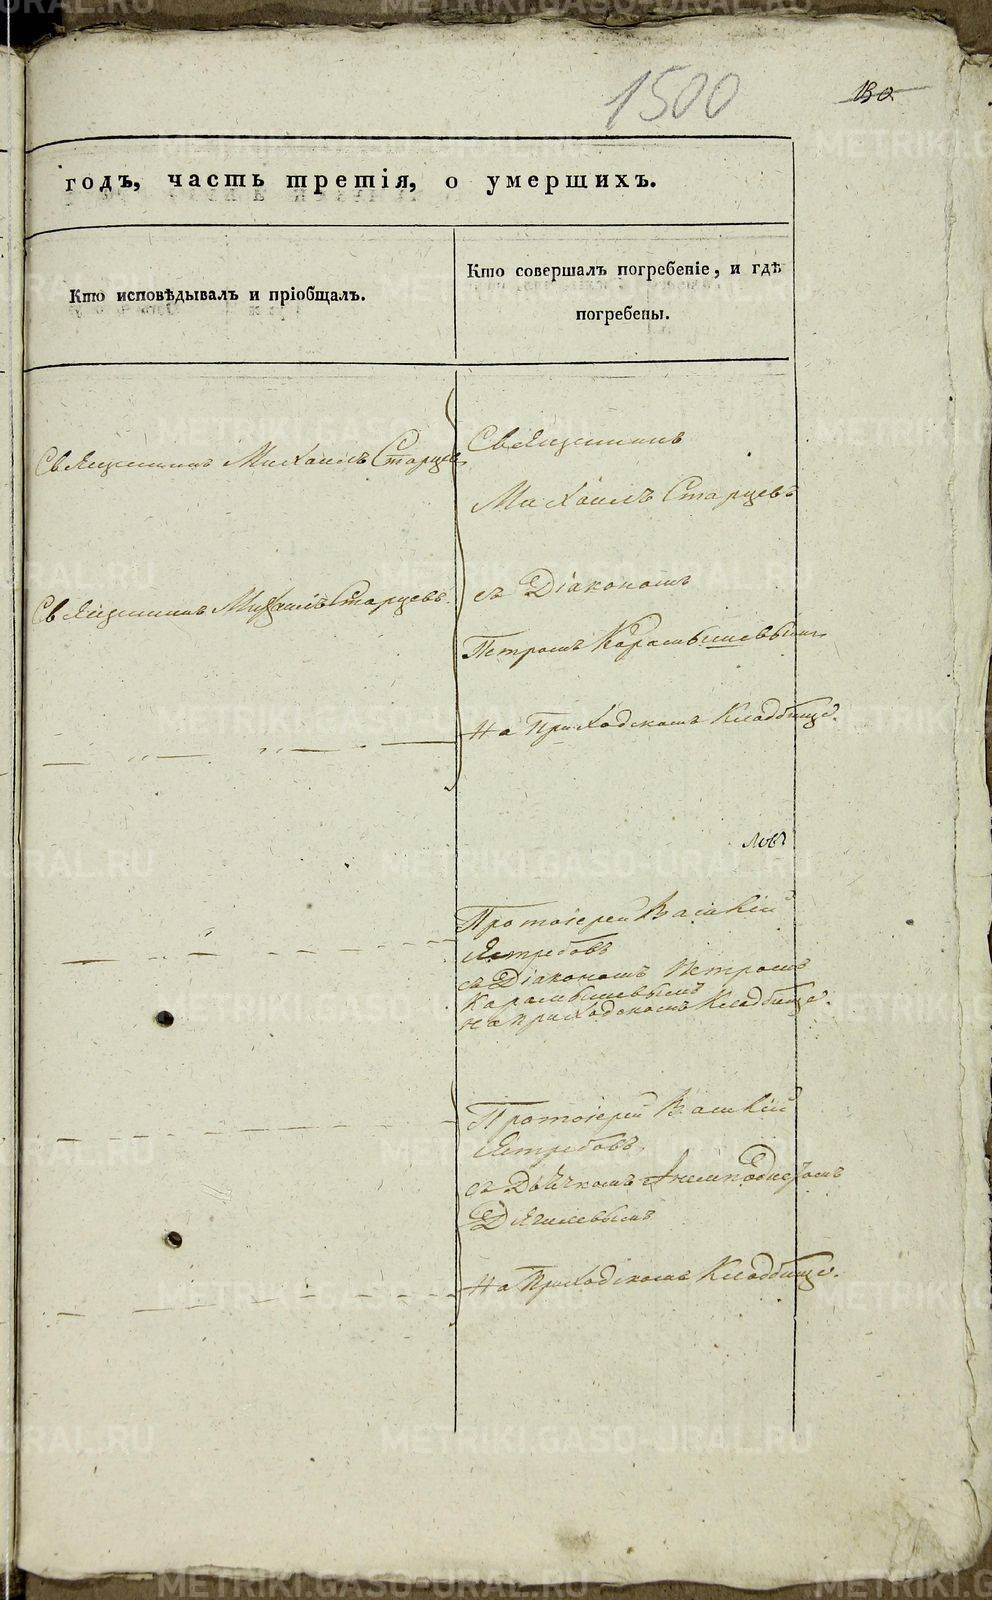 1500
130
годъ, часть третія, о умершихъ.
Кто исповѣдывалъ и пріобщалъ.
Кто совершалъ погребеніе, и гдѣ
погребены.
Священникъ Михаилъ Старцев
Священникъ
Михаилъ Старцевъ
Священникъ Михаилъ Старцевъ
съ Діакономъ
Петромъ Карамышевымъ
на Приходскомъ Кладбище.
Протоіерей Василій
Ястребовъ
съ Діакономъ Петромъ
Карамышевымъ
на приходскомъ Кладбище.
Протоіерей Василій
Ястребовъ
съ Дьячкомъ
Дягилевымъ
на Приходскомъ Кладбище.
METRIKI.GASO-URAL.RU